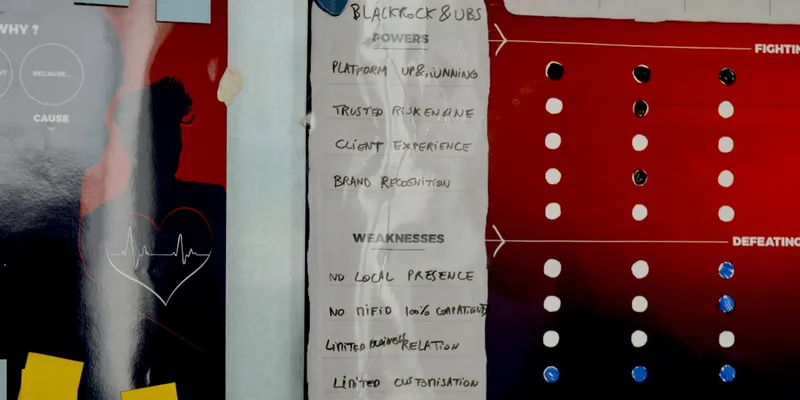 WHY ?
BECAUSE...
CAUSE
BLACKROCK & UBS
POWERS
PLATFORM UP & RUNNING
TRUSTED RISK ENGINE
CLIENT EXPERIENCE
BRAND RECOGNITION
WEAKNESSES
NO LOCAL PRESENCE
NO MIFID 100% COMPATIBLE
LIMITED BUSINESS RELATION
LIMITED CUSTOMISATION
FIGHTIN
DEFEATING